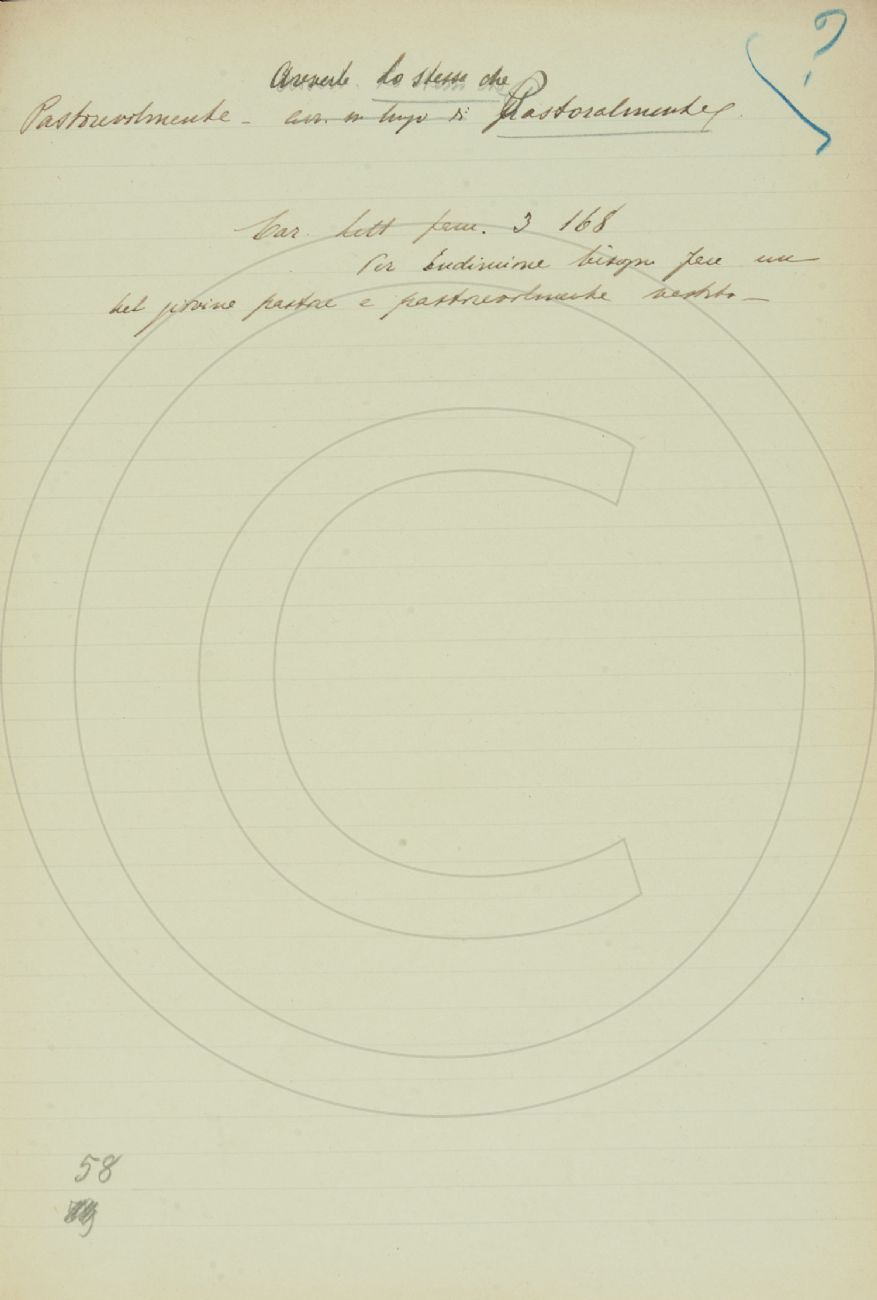 ?
Avverb. Lo stesso che
Pastorevolmente - avv. in luogo di Pastoralmente
Car. lett. fam. 3 168
Per Endimione bisogna fare un
bel giovine pastore e pastorevolmente vestito —
58